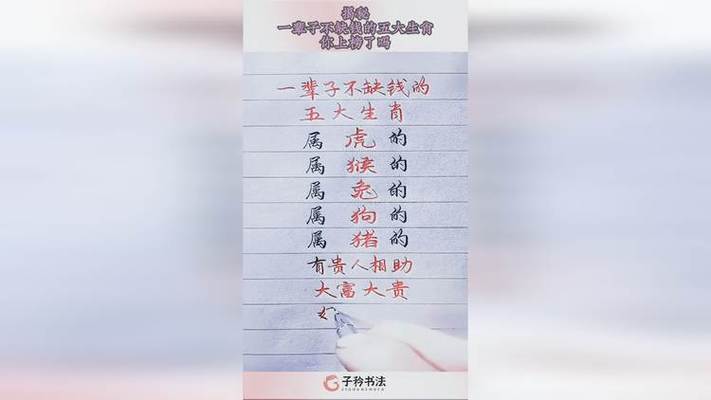 揭秘
一辈子不缺钱的五大生肖
你上榜了吗
一辈子不缺钱的
五大生肖
属 虎 的
属 猴 的
属 兔 的
属 狗 的
属 猪 的
有贵人相助
大富大贵
子衿书法